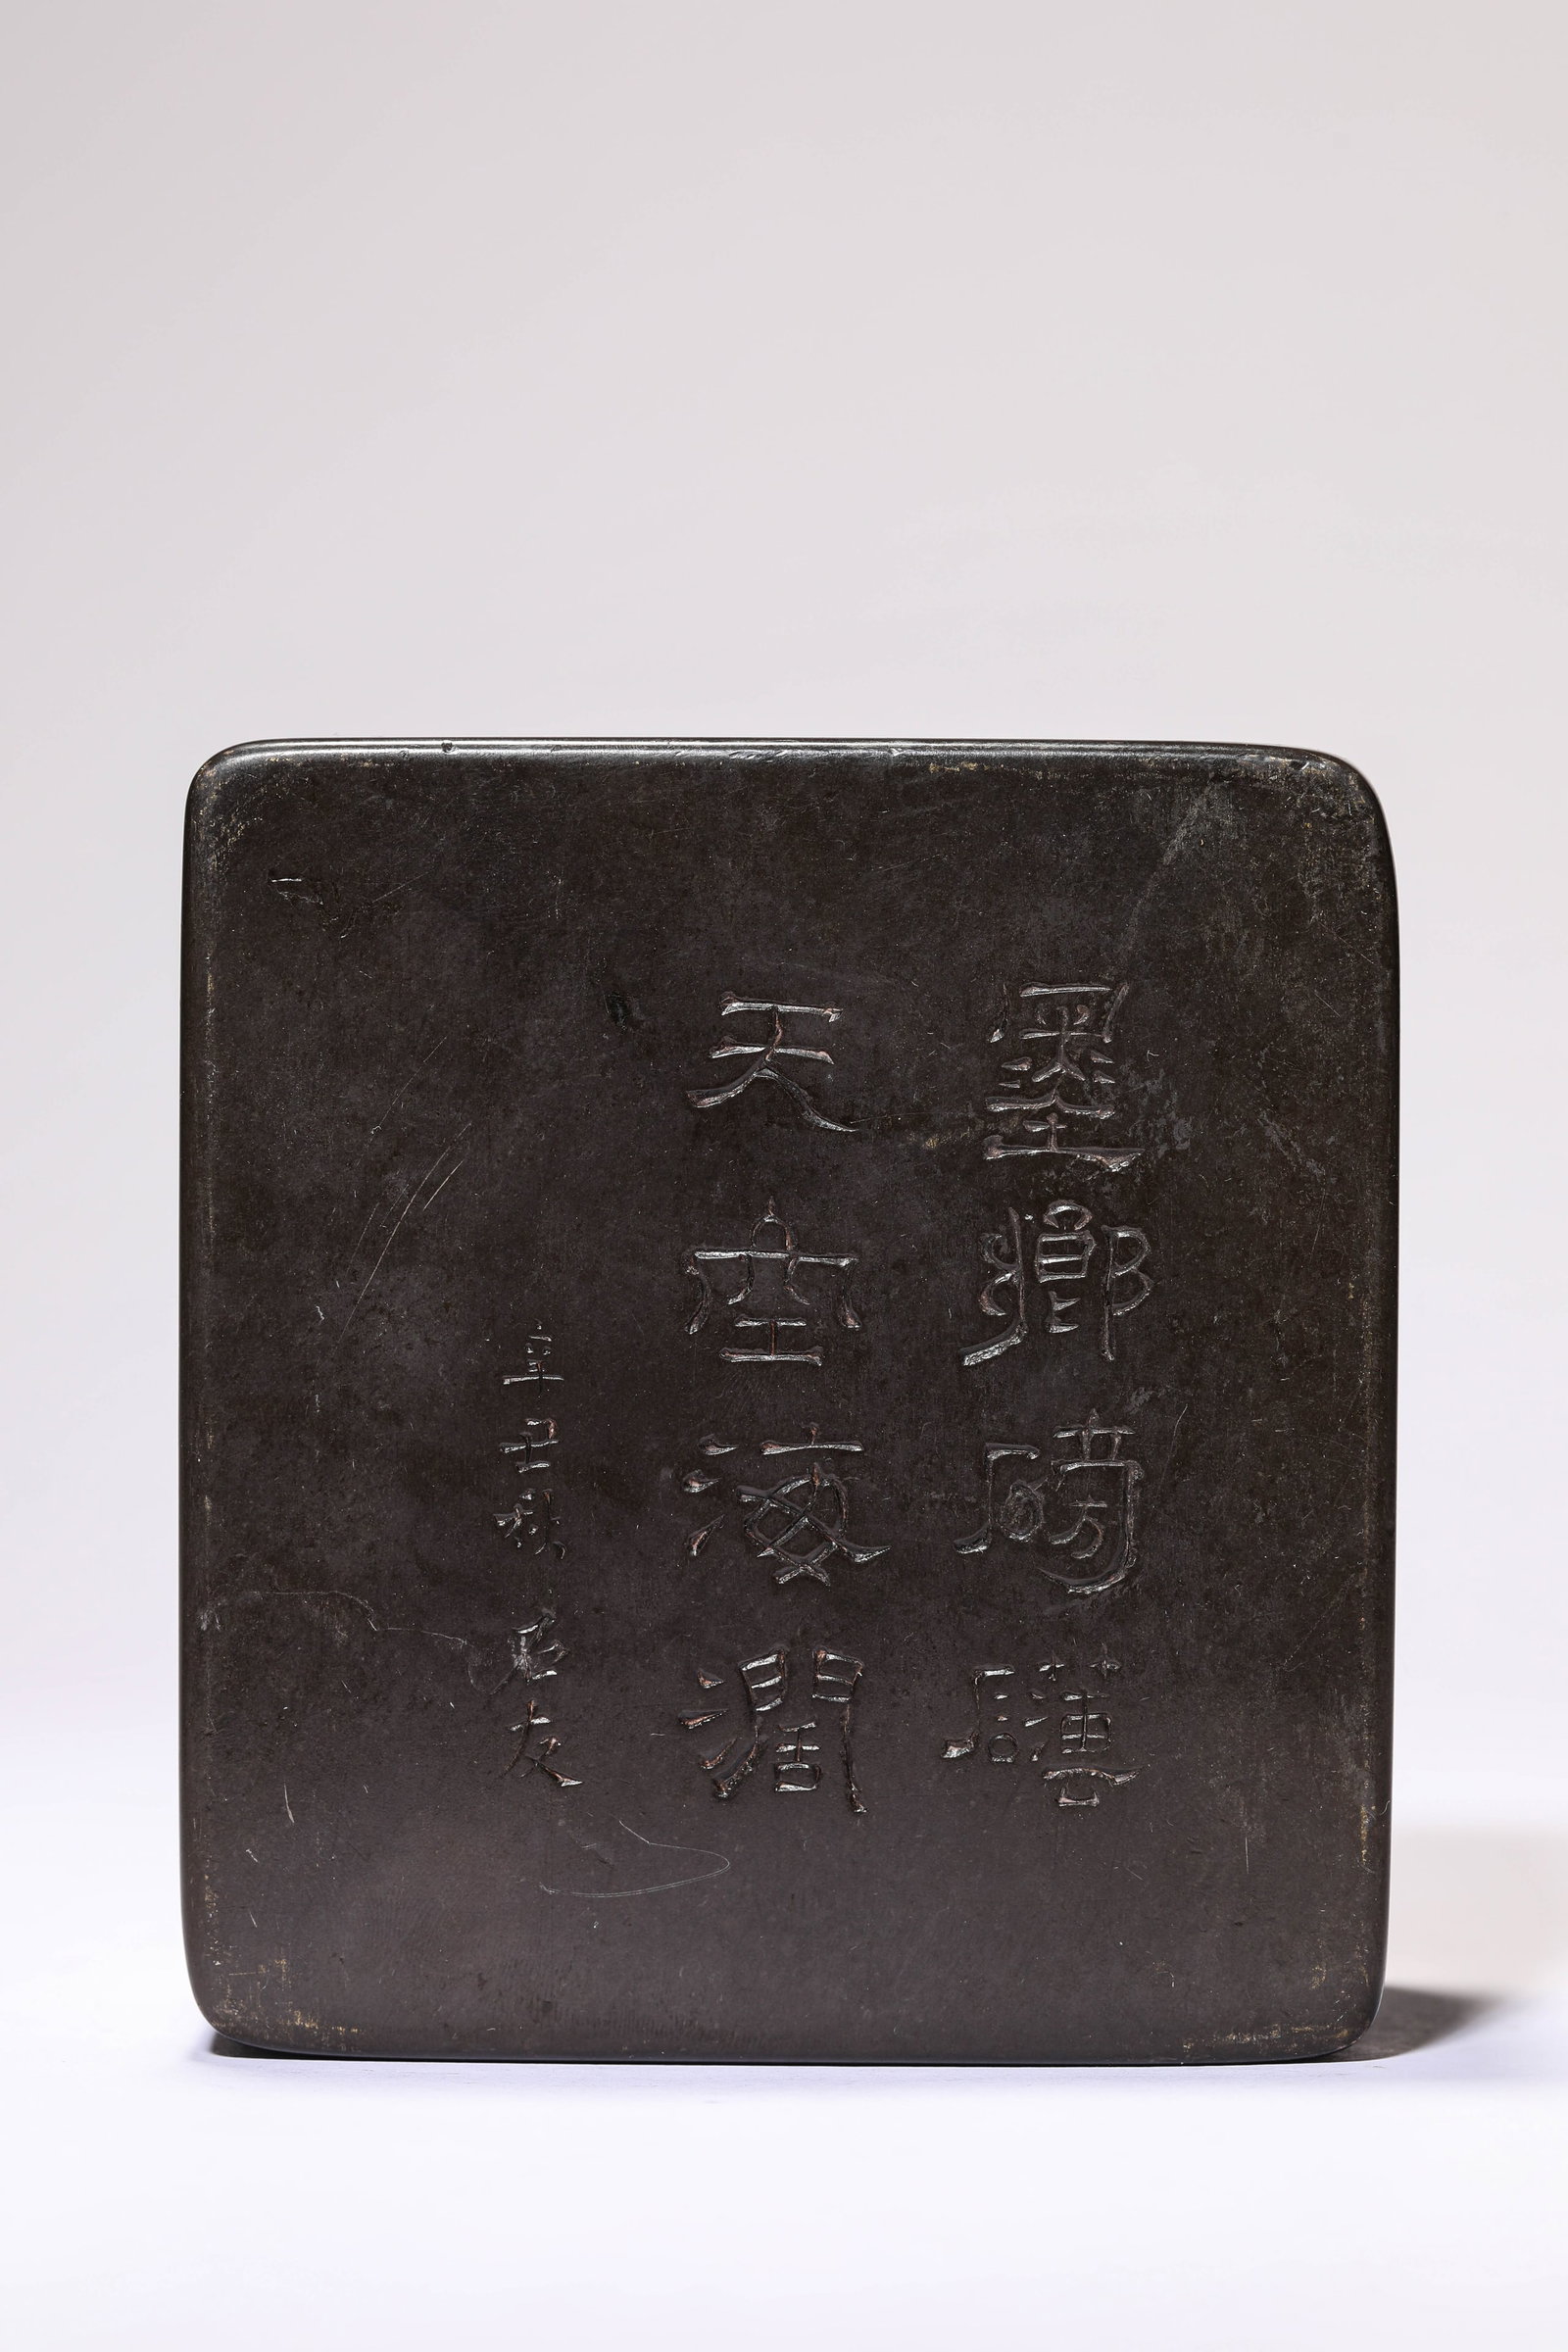 墨鄉磅礴
天空海濶
辛丑秋 石友